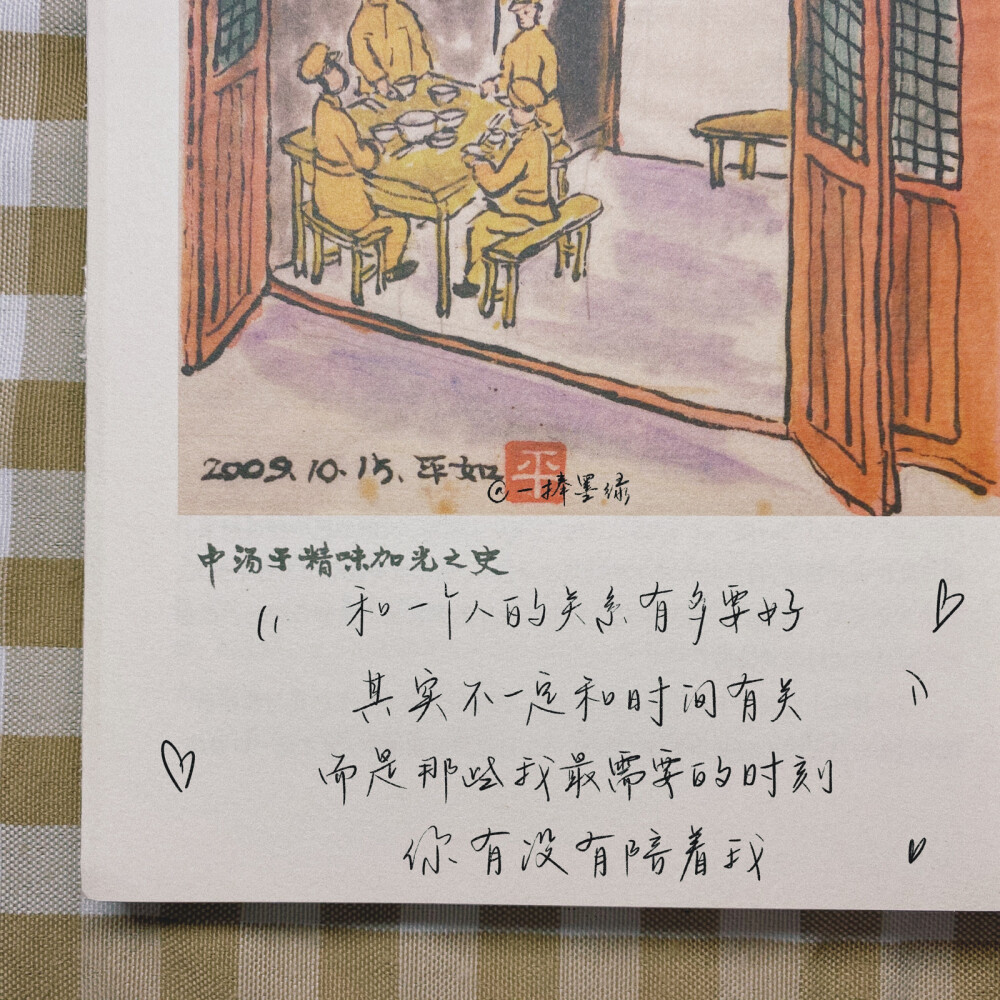 2009.10.15.平如
平
@一捧墨绿
和一个人的关系有多要好
其实不一定和时间有关
而是那些我最需要的时刻
你有没有陪着我